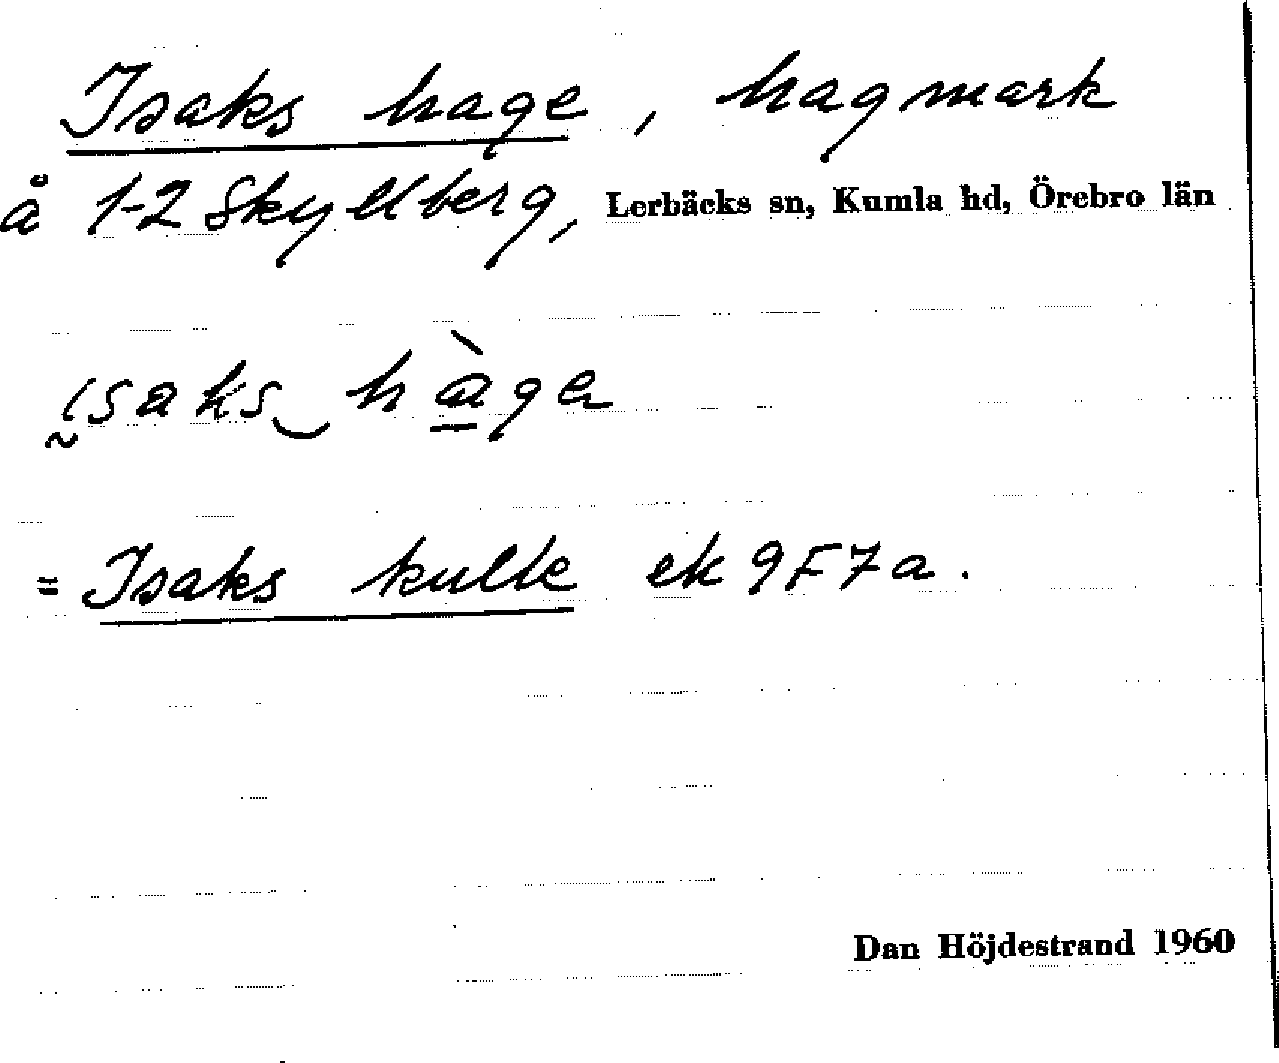 Isaks hage, hagmark
å 1-2 Skyllberg, Lerbäcks sn, Kumla hd, Örebro län
ɩ̰saks‿hà̱ga
= Isaks kulle ek 9F7a.
Dan Höjdestrand 1960